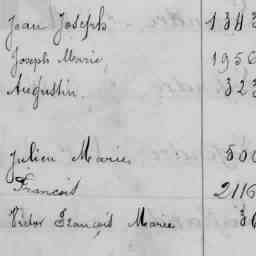 Jean Joseph 1343
Joseph Marie 1956
Augustin 323
Julien Marie 500
François 2116
Victor François Marie 36